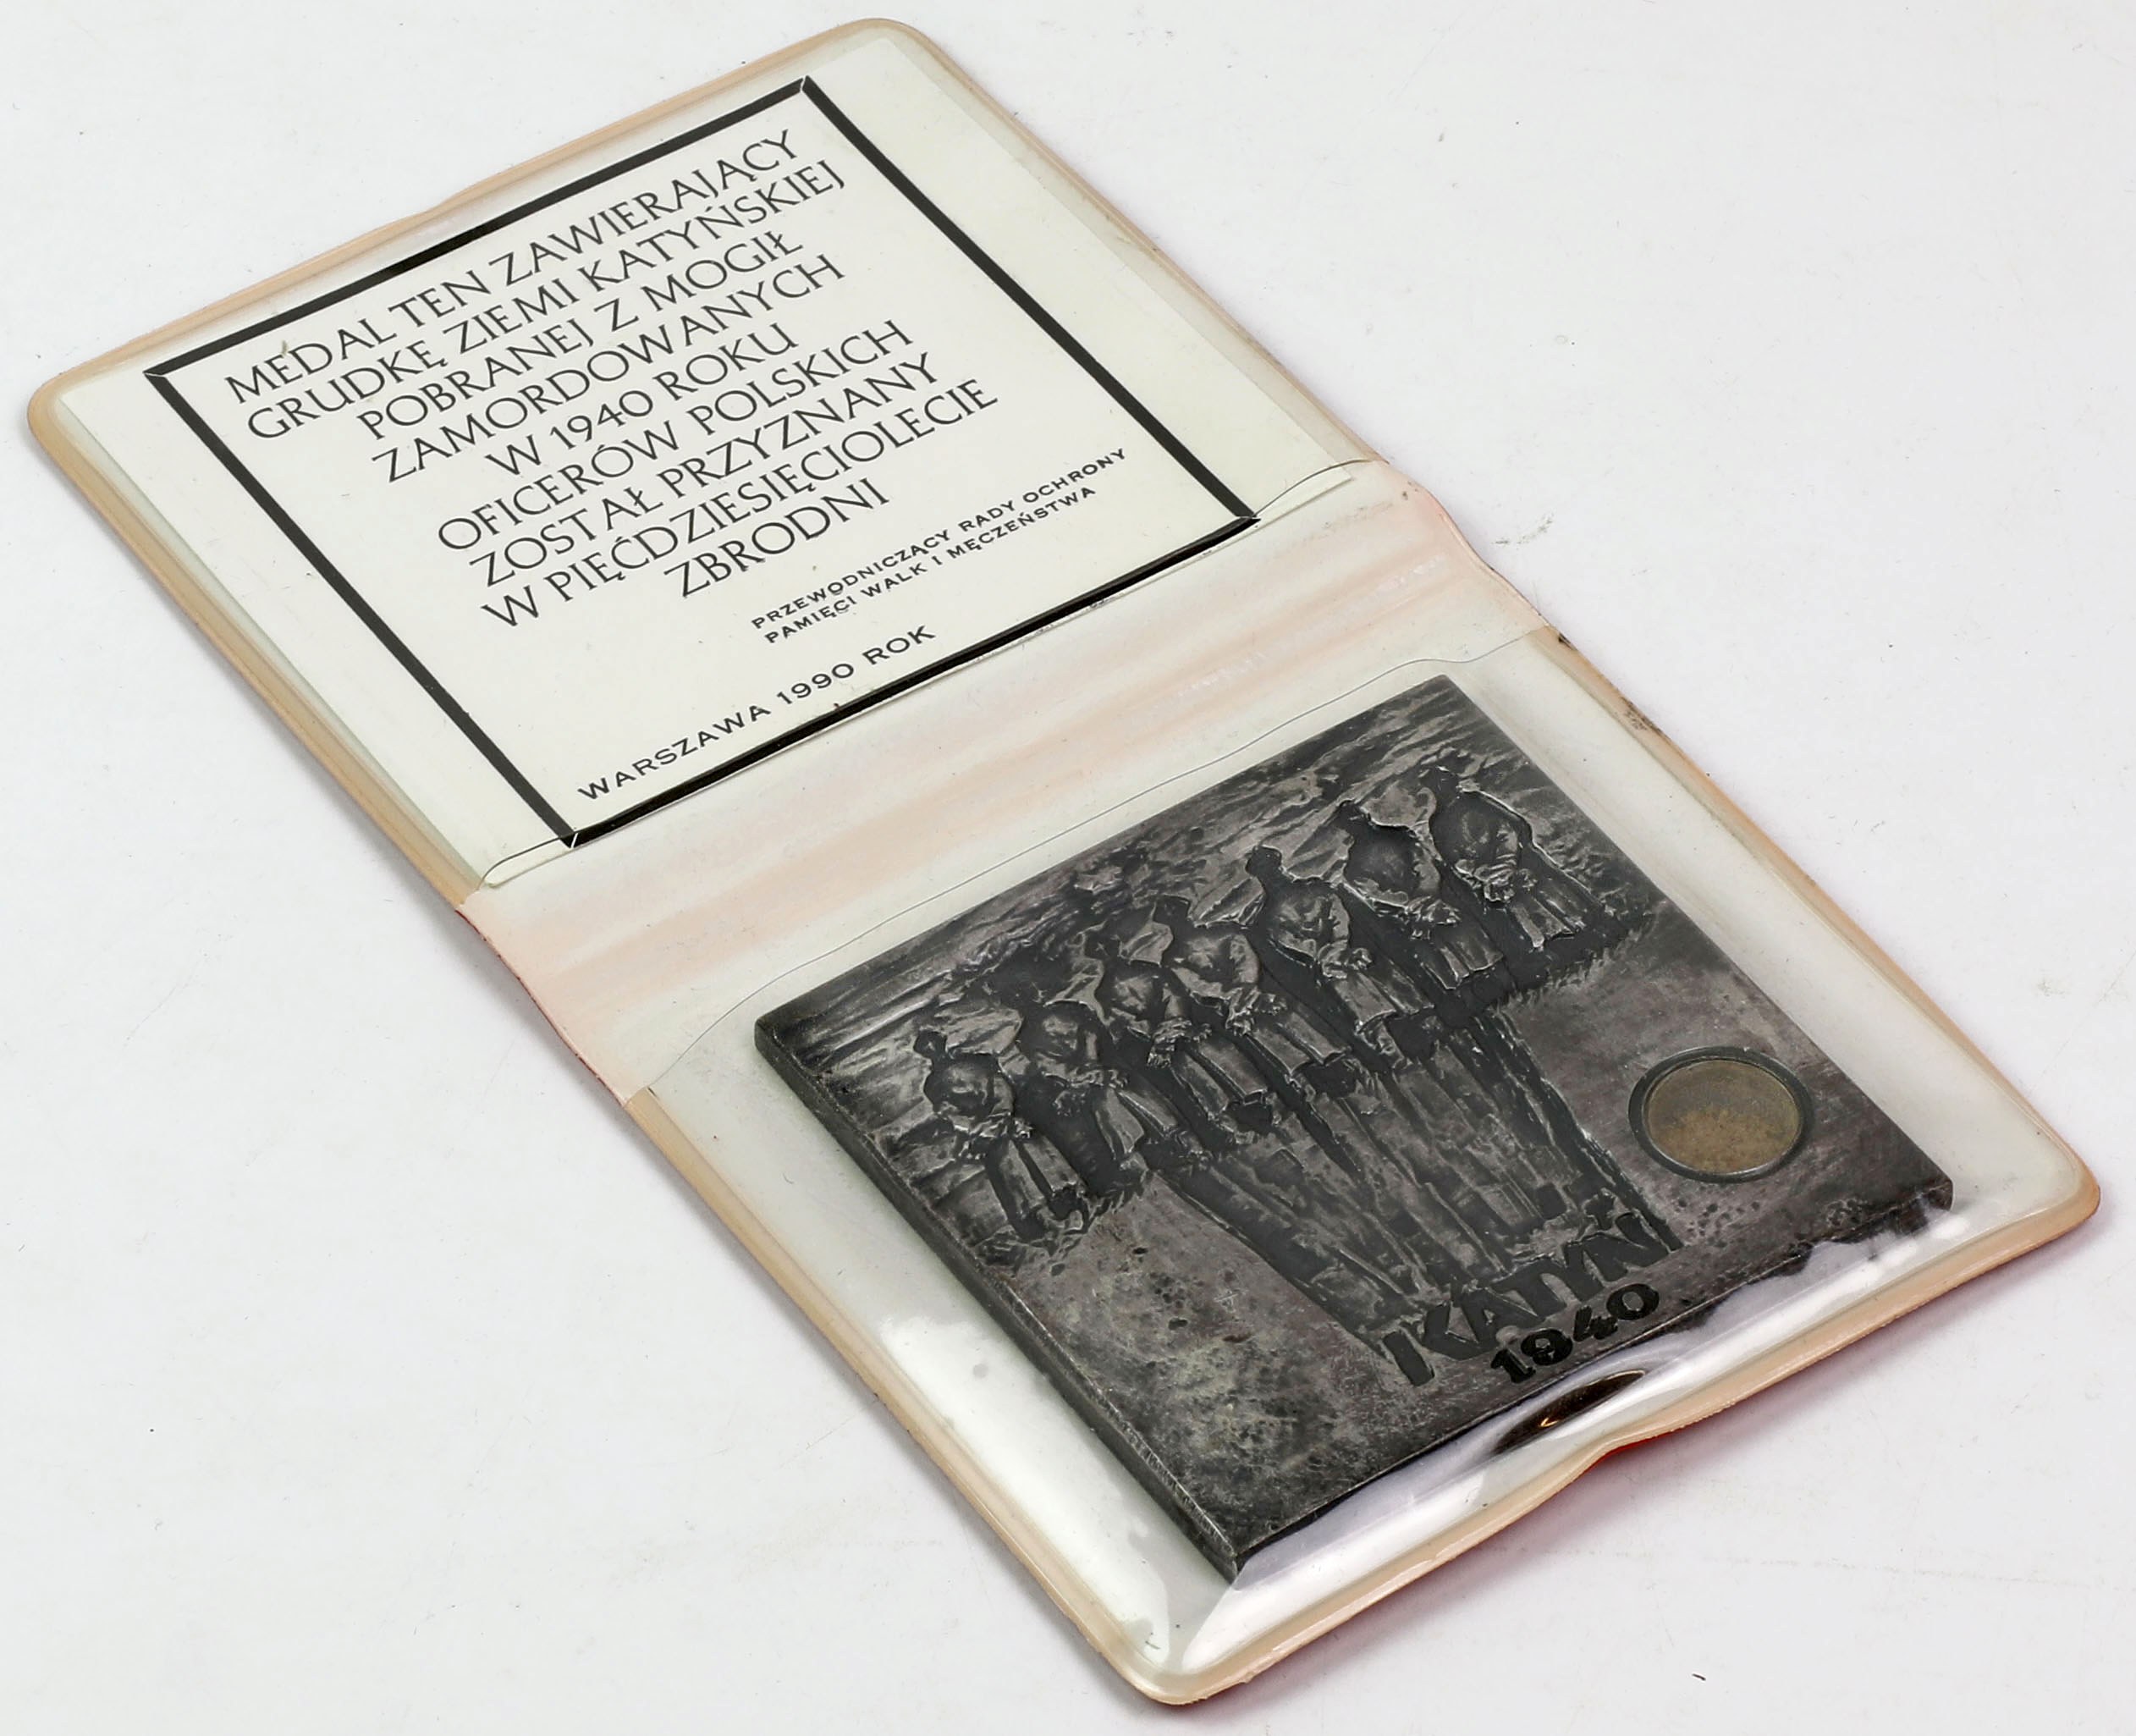 MEDAL TEN ZAWIERAJĄCY
GRUDKĘ ZIEMI KATYŃSKIEJ
POBRANEJ Z MOGIŁ
ZAMORDOWANYCH
W 1940 ROKU
OFICERÓW POLSKICH
ZOSTAŁ PRZYZNANY
W PIĘĆDZIESIĘCIOLECIE
ZBRODNI
PRZEWODNICZĄCY RADY OCHRONY
PAMIĘCI WALK I MĘCZEŃSTWA
WARSZAWA 1990 ROK
KATYŃ
1940